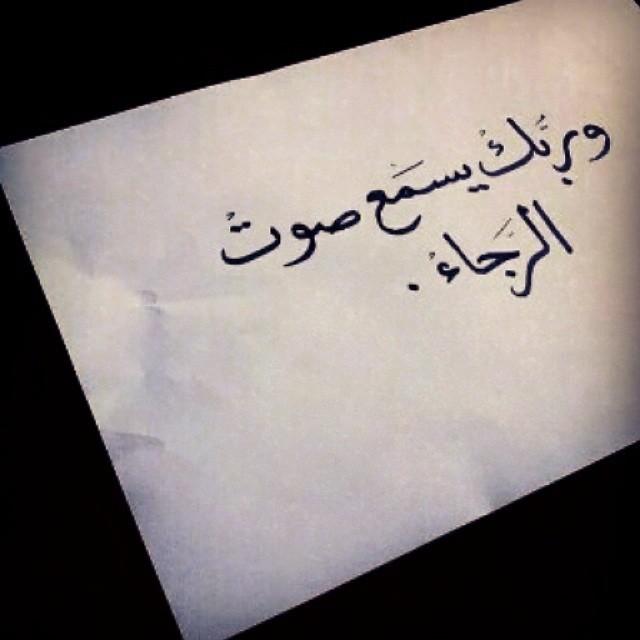 وربَّكْ يسمَع صوتْ
الرَّجَاءْ .